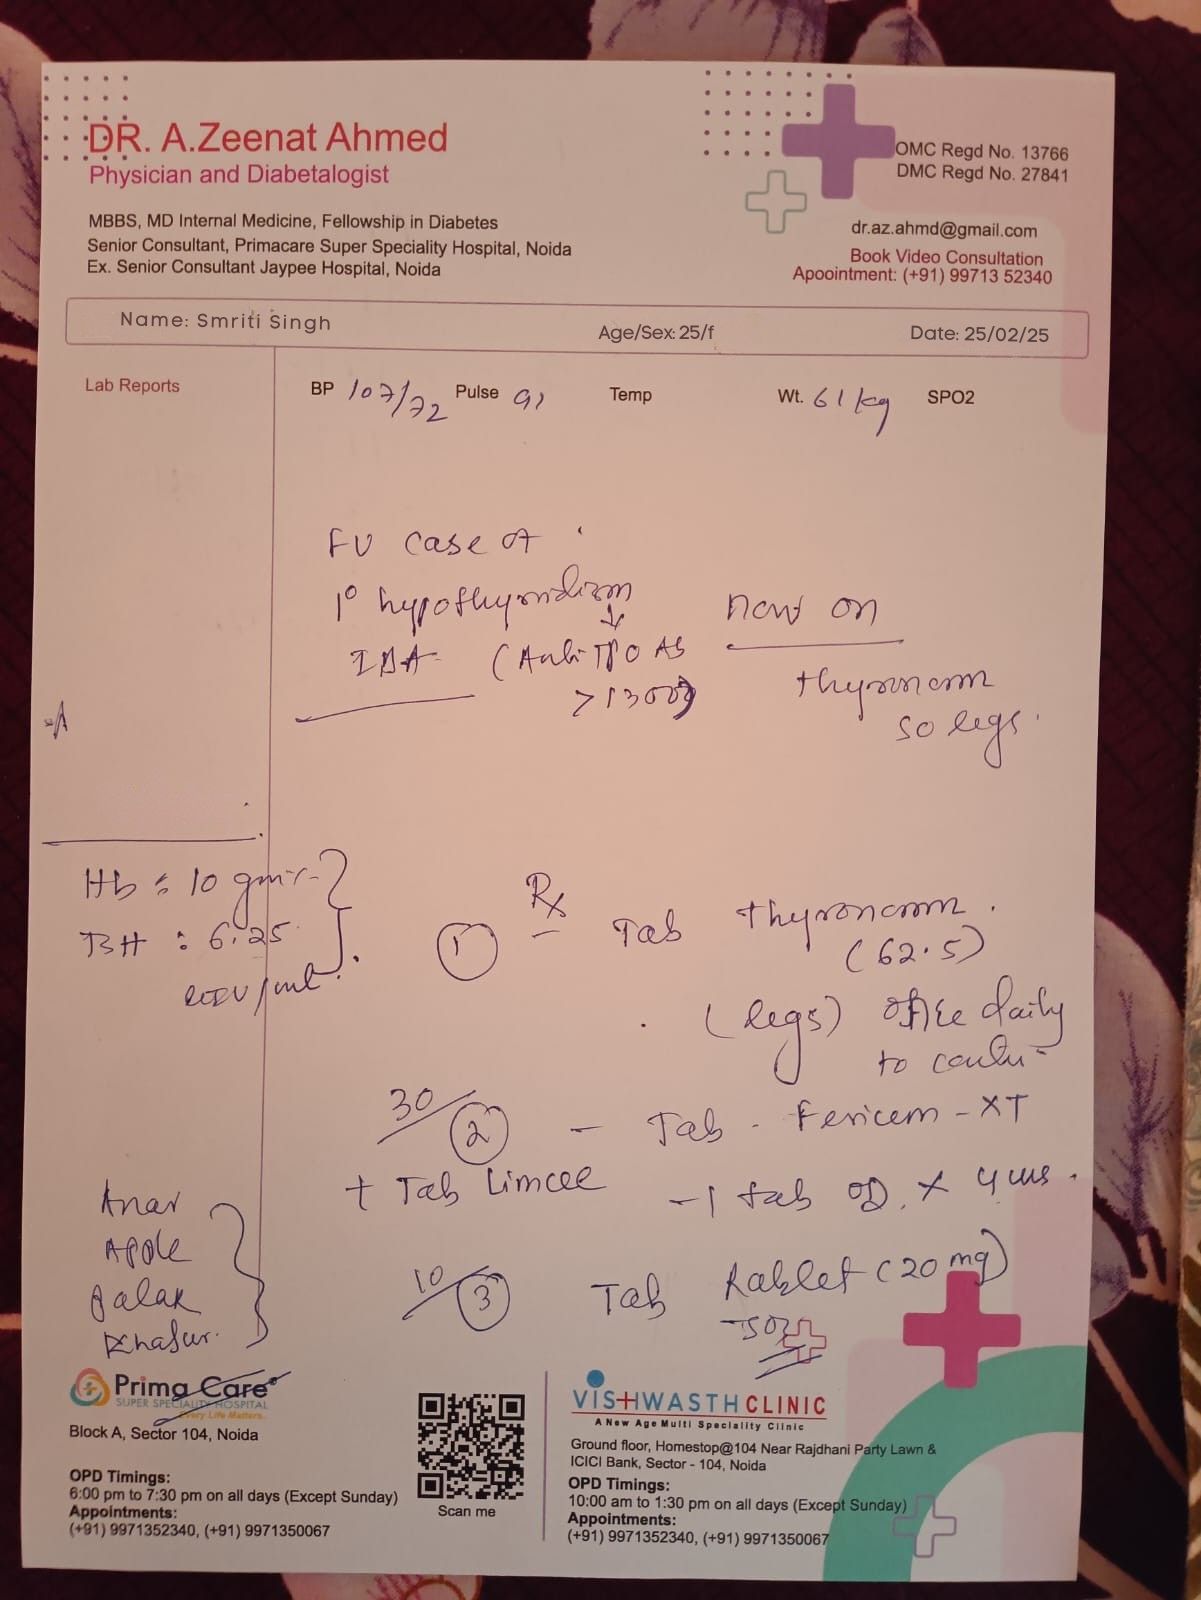 DR. A.Zeenat Ahmed
Physician and Diabetalogist
MBBS, MD Internal Medicine, Fellowship in Diabetes
Senior Consultant, Primacare Super Speciality Hospital, Noida
Ex. Senior Consultant Jaypee Hospital, Noida
OMC Regd No. 13766
DMC Regd No. 27841
dr.az.ahmd@gmail.com
Book Video Consultation
Apoointment: (+91) 99713 52340
Name: Smriti Singh Age/Sex: 25/f Date: 25/02/25
Lab Reports
BP 107/72 Pulse 91 Temp Wt. 61 kg SPO2
FU case of
1° hypothyroidism now on
IDA (Anti TPO Ab
>1300) thyronorm
50
Hb = 10 gm%
TSH : 6.25
Rx
1 Tab thyronorm
(62.5)
daily
to
30
2 - Tab - Fericem - XT
+ Tab Limcee - 1 tab OD x 4
Anar
Apple
Palak
Khajur
10
3 Tab Rablet (20 mg)
SOS
Prima Care
SUPER SPECIALITY HOSPITAL
Every Life Matters.
Block A, Sector 104, Noida
OPD Timings:
6:00 pm to 7:30 pm on all days (Except Sunday)
Appointments:
(+91) 9971352340, (+91) 9971350067
Scan me
VISHWASTH CLINIC
A New Age Multi Speciality Clinic
Ground floor, Homestop@104 Near Rajdhani Party Lawn &
ICICI Bank, Sector - 104, Noida
OPD Timings:
10:00 am to 1:30 pm on all days (Except Sunday)
Appointments:
(+91) 9971352340, (+91) 9971350067